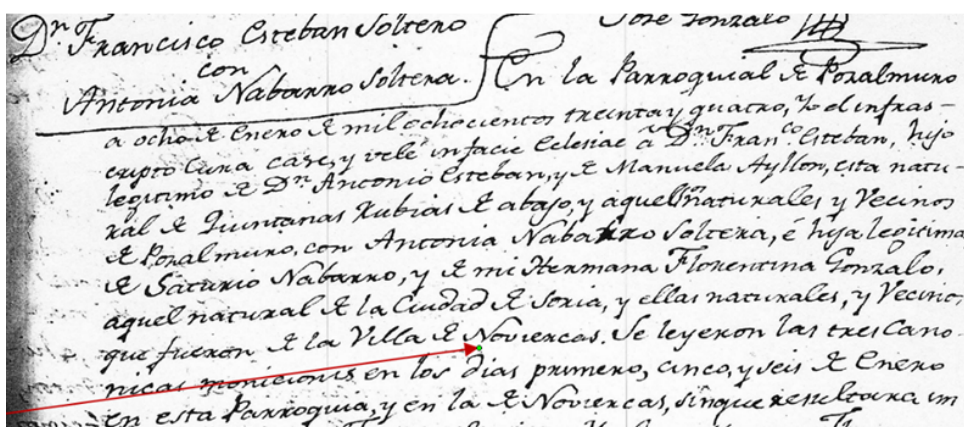 Dn Francisco Esteban Soltero
con
Antonia Nabarro Soltera.
Jose Gonzalo
En la Parroquial de Pozalmuro
a ocho de Enero de mil ochocientos treinta y quatro, Yo el infras-
cripto Cura casé, y velé in facie Eclesiae a Dn Franco Esteban, hijo
legitimo de Dn Antonio Esteban, y de Manuela Ayllon, esta natu-
ral de Quintanas Rubias de abajo, y aquellos naturales y Vecinos
de Pozalmuro, con Antonia Nabarro Soltera, é hija legitima
de Saturio Nabarro, y de mi Hermana Florentina Gonzalo,
aquel natural de la Ciudad de Soria, y ellas naturales, y Vecinos
que fueron de la Villa de Noviercas. Se leyeron las tres Cano-
nicas moniciones en los dias primero, cinco, y seis de Enero
en esta Parroquia, y en la de Noviercas, sin que resultara im